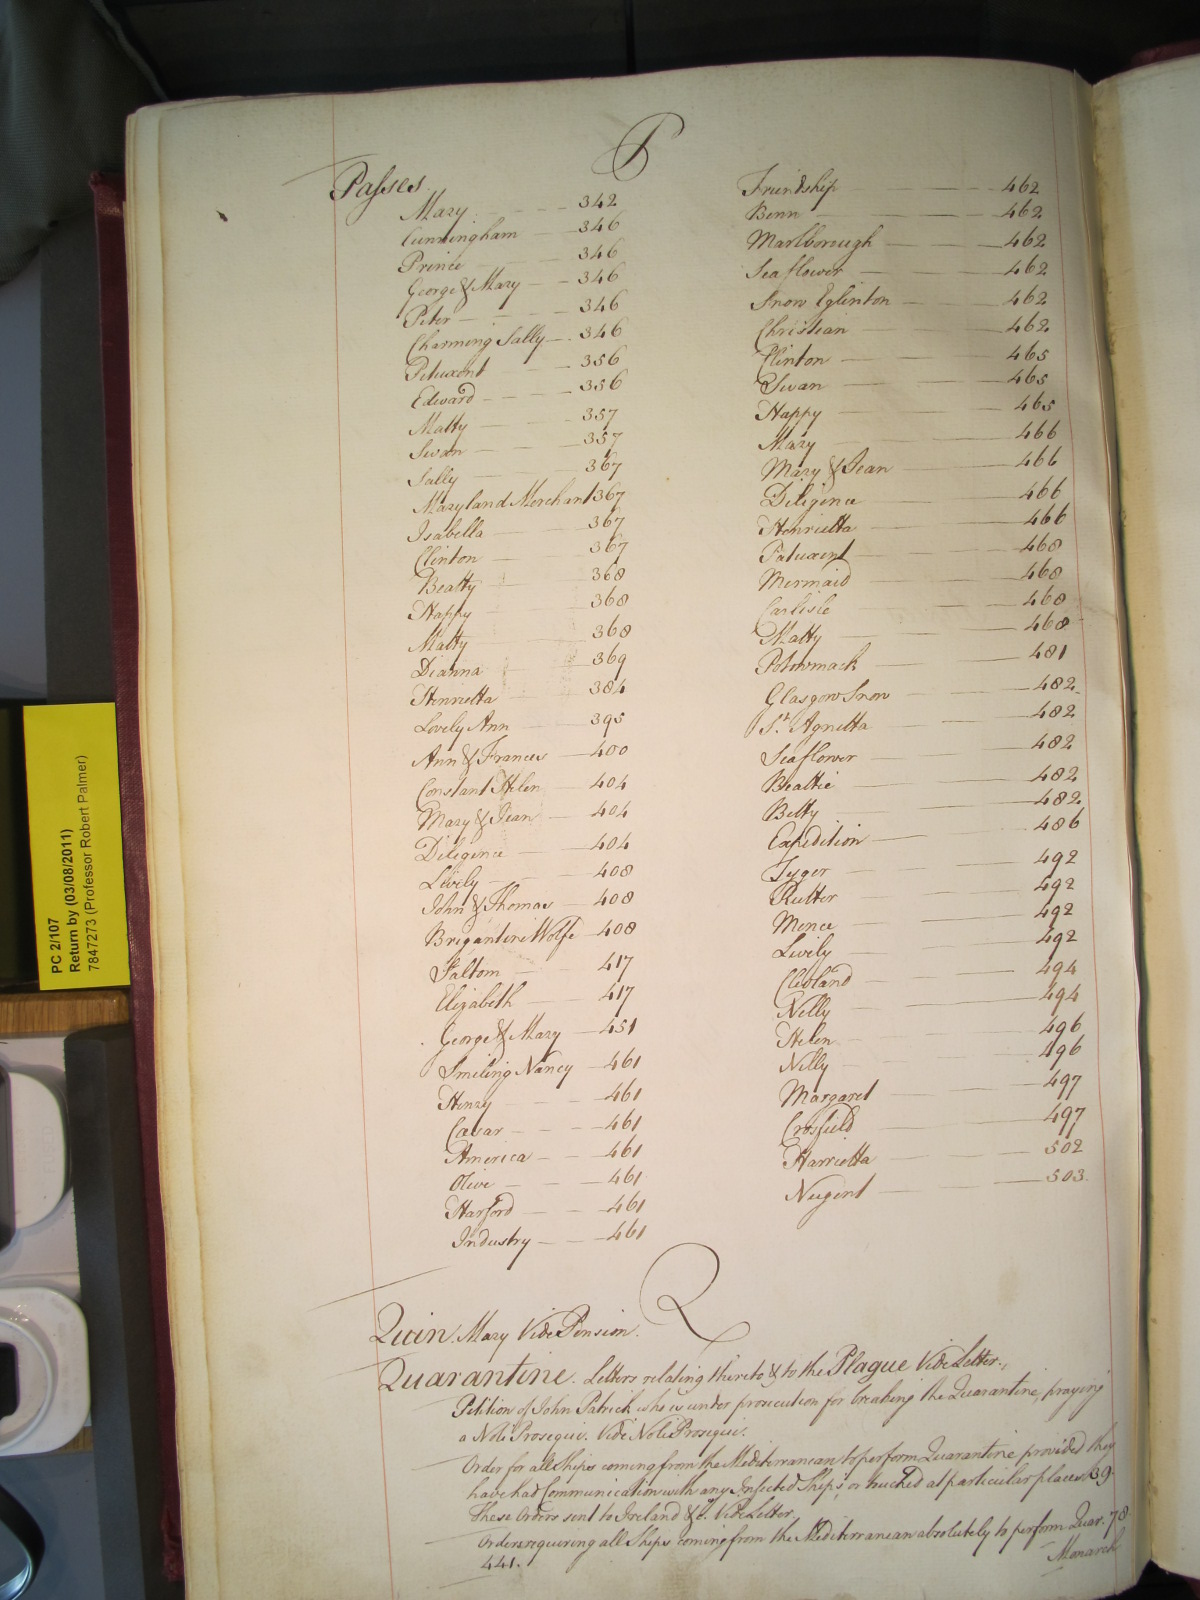 P
Passes.
Mary 342
Cunningham 346
Prince 346
George & Mary 346
Peter 346
Charming Sally 346
Patuxent 356
Edward 356
Matty 357
Swan 357
Sally 367
Maryland Merchant 367
Isabella 367
Clinton 367
Beatty 368
Happy 368
Matty 368
Dianna 369
Henrietta 384
Lovely Ann 395
Ann & Frances 400
Constant Helen 404
Mary & Jean 404
Diligence 404
Lively 408
John & Thomas 408
Brigantine Wolfe 408
Faltom 417
Elizabeth 417
George & Mary 451
Smiling Nancy 461
Henry 461
Cæsar 461
America 461
Olive 461
Harford 461
Industry 461
Friendship 462
Benn 462
Marlborough 462
Seaflower 462
Snow Eglinton 462
Christian 462
Clinton 465
Swan 465
Happy 465
Mary 466
Mary & Jean 466
Diligence 466
Henrietta 466
Patuxent 468
Mermaid 468
Carlisle 468
Matty 468
Potowmack 481
Glasgow Snow 482
St. Agnetta 482
Seaflower 482
Beattie 482
Betty 482
Expedition 486
Tyger 492
Rutter 492
Mence 492
Lively 492
Cleoland 494
Nelly 494
Helen 496
Nelly 496
Margaret 497
Crosfield 497
Harriotta 502
Nugent 503
Q
Quin. Mary Vide Pension.
Quarantine. Letters relating thereto & to the Plague Vide Letter.
Petition of John Patrick who is under prosecution for breaking the Quarantine, praying
a Noli Prosequi. Vide Noli Prosequi.
Order for all Ships coming from the Mediterranean to perform Quarantine provided they
have had Communication with any Infected Ships, or touched at particular places 39.
These Orders sent to Ireland &c. Vide Letter.
Orders requiring all Ships coming from the Mediterranean absolutely to perform Quar. 78
441.
Monarch
PC 2/107
Return by (03/08/2011)
7847273 (Professor Robert Palmer)